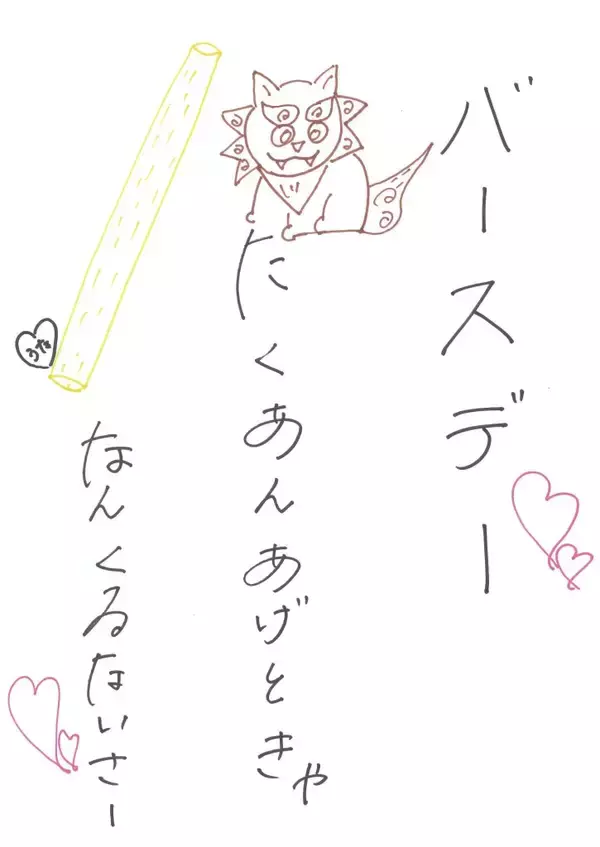 バースデー
にくあんあげときゃ
なんくるないさー